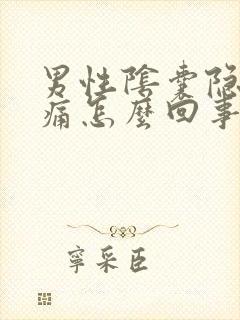 男性陰囊隐
痛怎麼回事
寧采臣